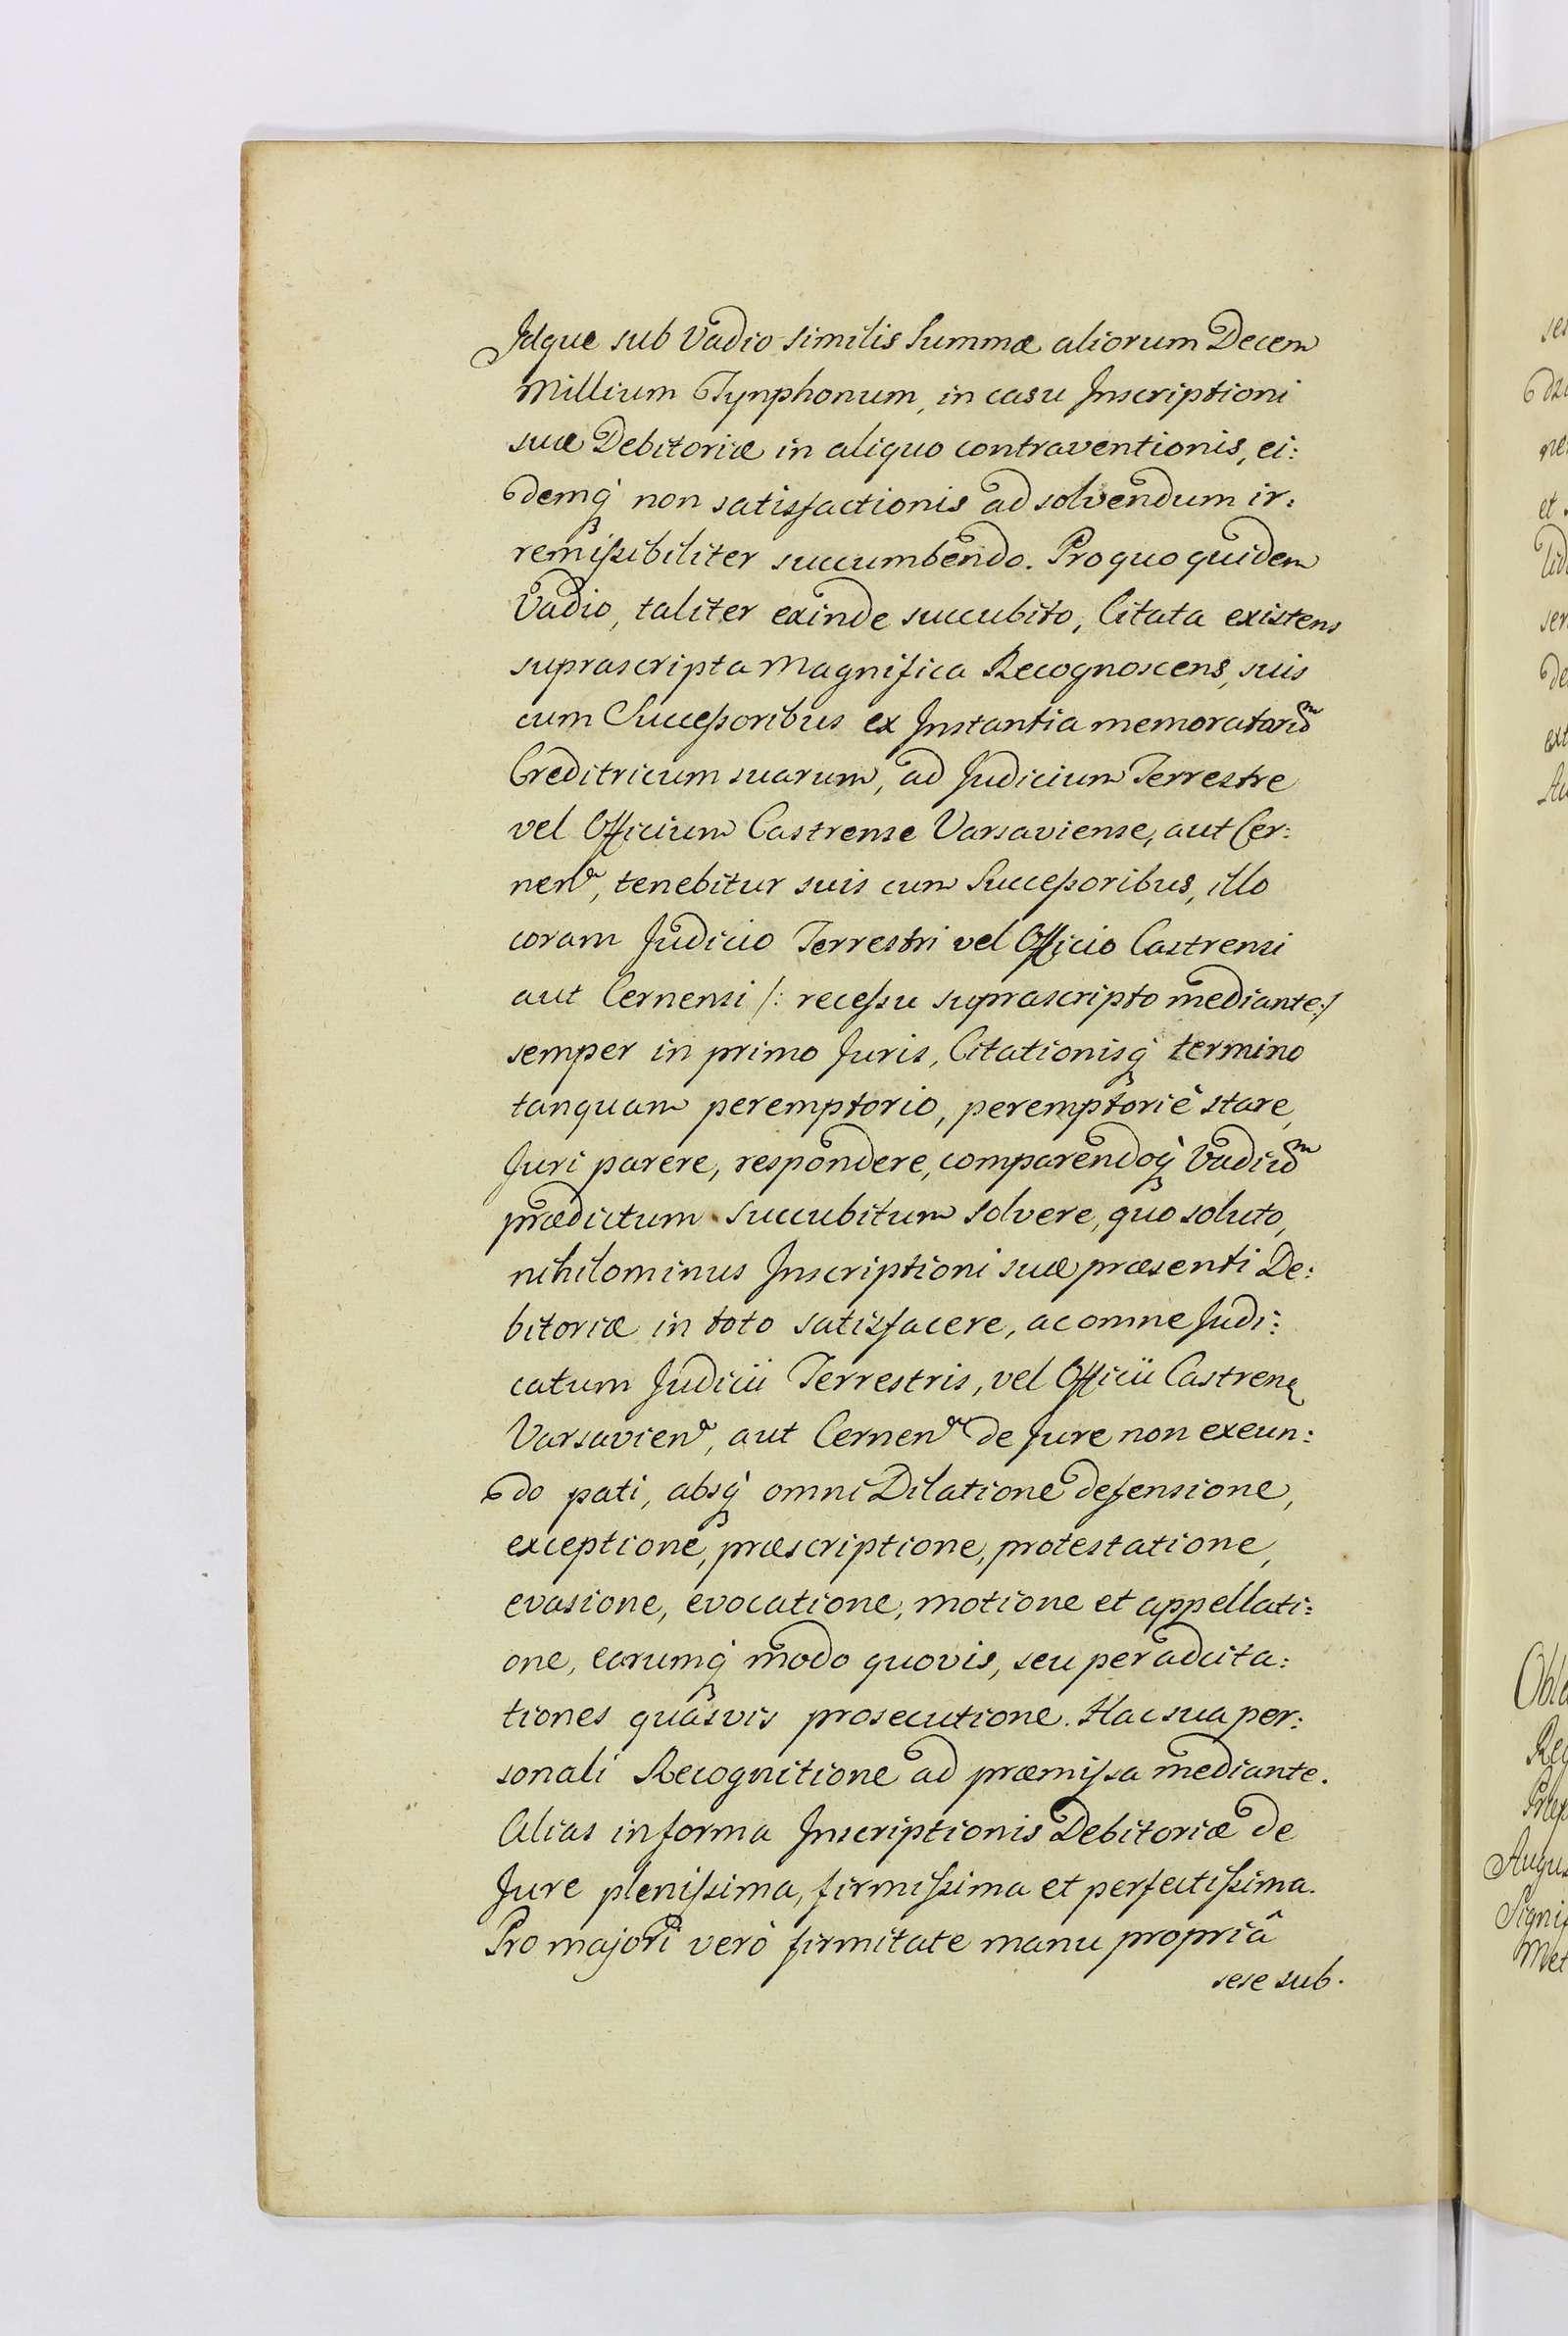 Idque sub Vadio similis Summæ aliorum Decem
Millium Tynphonum, in casu Inscriptioni
suæ Debitoriæ in aliquo contraventionis, ei:
demq́ non satisfactionis ad solvendum ir:
remißibiliter succumbendo. Pro quo quidem
Vadio, taliter exinde succubito, Citata existens
suprascripta Magnifica Recognoscens, suis
cum Succeßoribus ex Instantia memoratoru͂
Creditricum suarum, ad Judicium Terrestre
vel Officium Castrense Varsaviense, aut Cer:
nen͂, tenebitur suis cum Succeßoribus, illo
coram Judicio Terrestri vel Officio Castrensi
aut Cernensi /: receßu suprascripto mediante:/
semper in primo Juris, Citationisq́ termino
tanquam peremptorio, peremptoriè stare,
Juri parere, respondere, comparendoq́ Vadiu͂
prædictum succubitum solvere, quo soluto,
nihilominus Inscriptioni suæ præsenti De:
bitoriæ in toto satisfacere, ac omne Judi:
catum Judicii Terrestris, vel Officii Castren͂
Varsavien͂, aut Cernen͂ de Jure non exeun:
do pati, absq́ omni Dilatione defensione,
exceptione, præscriptione, protestatione,
evasione, evocatione, motione et appellati:
one, earumq́ modo quovis, seu per adcita:
tiones quasvis prosecutione. Hac sua per:
sonali Recognitione ad præmißa mediante.
Alias in forma Inscriptionis Debitoriæ de
Jure plenißima, firmißima et perfectißima.
Pro majori verò firmitate manu propriâ
sese sub.